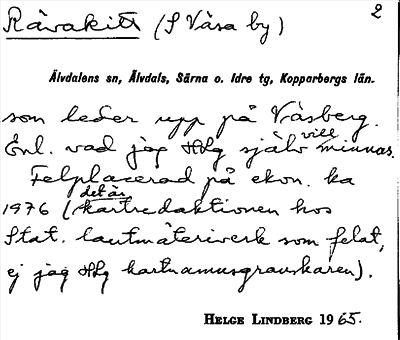 Råvakitt (S Våsa by) 2
Älvdalens sn, Älvdals, Särna o. Idre tg, Kopparbergs län.
som leder upp på Våsberg.
Enl. vad jag HLg själv vill minnas.
Felplacerad på ekon. ka
1976 (det är kartredaktionen hos
Stat. lantmäteriverk som felat,
ej jag HLg kartnamnsgranskaren).
HELGE LINDBERG 1965.